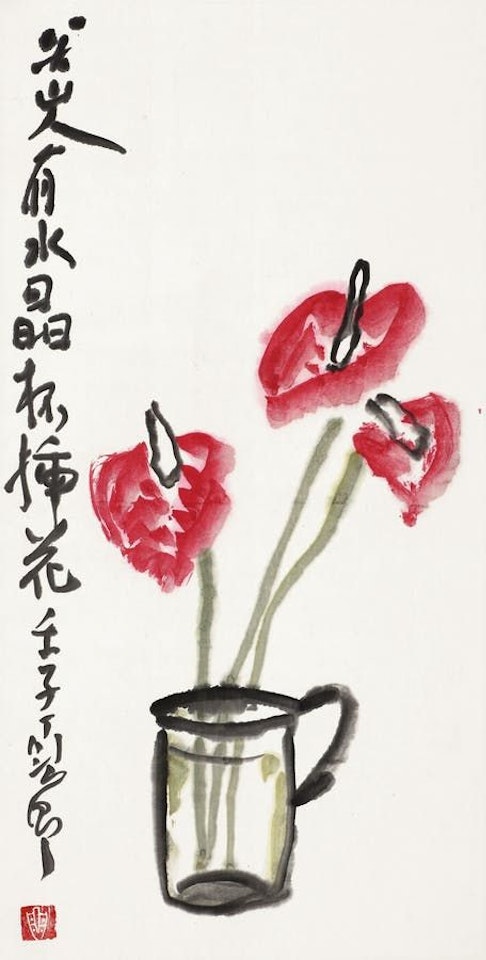 有水晶杯插花 壬子丁衍庸